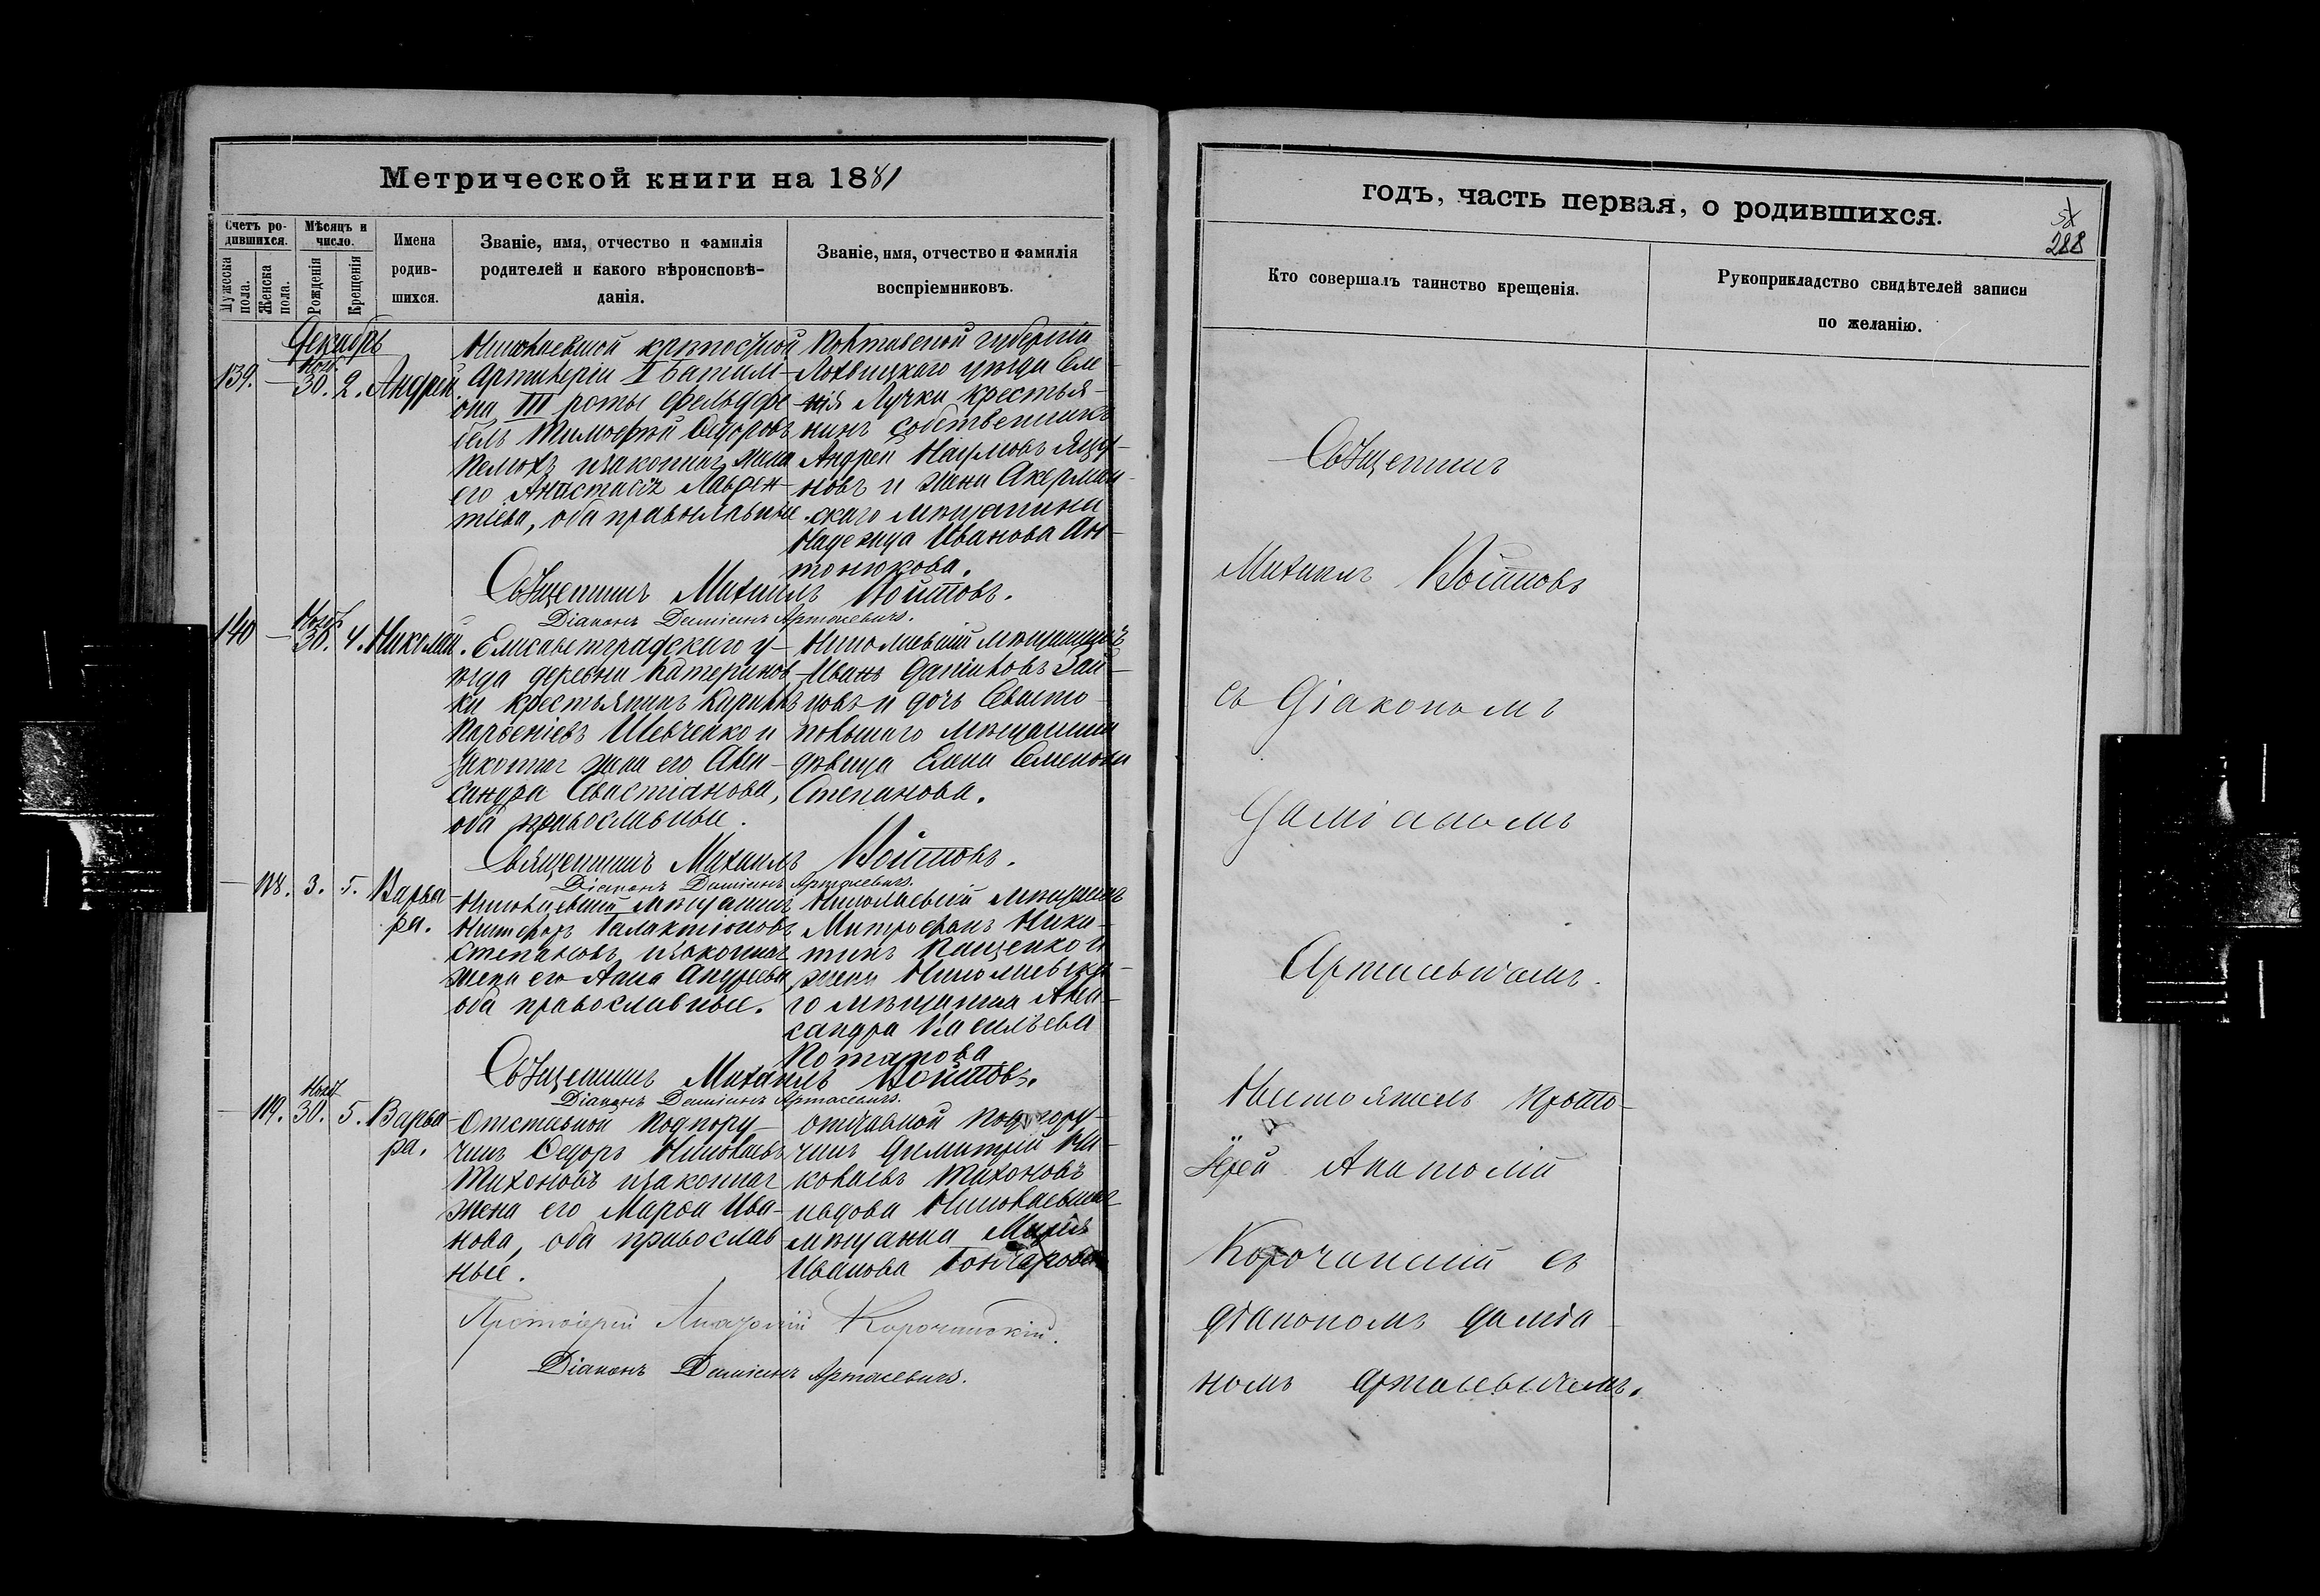 Метрической книги на 1881
Счетъ ро-
дившихся.
Мужеска пола.
Женска пола.
Мѣсяцъ и
число.
Рожденія
Крещенія
Имена
родив-
шихся.
Званіе, имя, отчество и фамилія
родителей и какого вѣроисповѣ-
данія.
Званіе, имя, отчество и фамилія
воспріемниковъ.
Декабрь
139. — Нояб. 30. 2. Андрей.
Николаевской крѣпостной
Артиллеріи II баталі-
она III роты фельдфе-
бель Тимофей Ѳедоровъ
и законная жена
его Анастасія Лаврен-
тіева, оба православные
Полтавской губерніи
Лохвицкаго уѣзда Селе-
нія Лучки крестья-
нинъ собственникъ
Андрей Наумовъ Яцу-
новъ и жена Акерман-
скаго мѣщанина
Надежда Иванова Ан-
тонюкова.
Священникъ Михаилъ Войтовъ.
Діаконъ Даміанъ Артасевичъ.
140 — Нояб. 30. 4. Николай.
Елисаветградскаго у-
ѣзда деревни Катеринов-
ки крестьянинъ Кириллъ
Парѳеніевъ Шевченко и
законная жена его Алек-
сандра Севастіанова,
оба православные.
Николаевскій мѣщанинъ
Иванъ Даніиловъ Зай-
цовъ и дочь Севасто-
польскаго мѣщанина
дѣвица Елена Семенова
Степанова.
Священникъ Михаилъ Войтовъ.
Діаконъ Даміанъ Артасевичъ.
— 118. 3. 5. Варва-
ра.
Николаевскій мѣщанинъ
Никифоръ Галактіоновъ
Степановъ и законная
жена его Анна Андреева
оба православные.
Николаевскій мѣщанинъ
Митрофанъ Ники-
тинъ Пащенко и
жена Николаевска-
го мѣщанина Алек-
сандра Васильева
Потапова
Священникъ Михаилъ Войтовъ.
Діаконъ Даміанъ Артасевичъ.
— 119. Нояб. 30. 5. Варва-
ра.
Отставной Подпору-
чикъ Ѳедоръ Николаевъ
Тихоновъ и законная
жена его Марѳа Ива-
нова, оба православ-
ные.
отставной подпору-
чикъ Димитрій Ни-
колаевъ Тихоновъ
и вдова Николаевская
мѣщанка Марія
Иванова Гончарова
Протоіерей Анатолій Корочанскій.
Діаконъ Даміанъ Артасевичъ.
годъ, часть первая, о родившихся.
288
Кто совершалъ таинство крещенія.
Рукоприкладство свидѣтелей записи
по желанію.
Священникъ
Михаилъ Войтовъ
съ Діакономъ
Даміаномъ
Артасевичемъ.
Настоятель Прото-
іерей Анатолій
Корочанскій съ
діакономъ Даміа-
номъ Артасевичемъ.